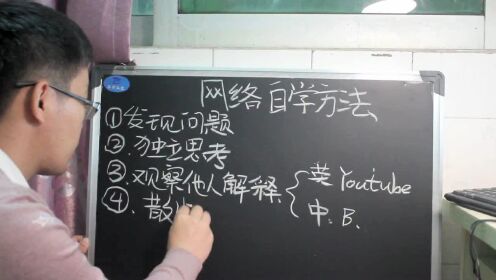 网络自学方法
①发现问题
②.独立思考
③.观察他人解释{英Youtube
中.B.
④.散